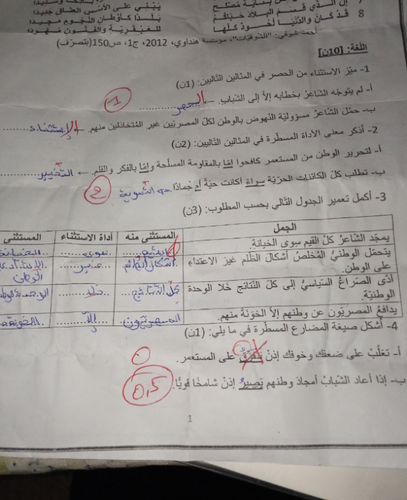 8 قد كان والدنيا لحود كلها للعبقرية والفنون مهودا
أحمد شوقي: "الشوقيات"، مؤسسة هنداوي، 2012، ج1، ص150 (بتصرف)
اللغة: [10ن]
1- ميّز الاستثناء من الحصر في المثالين التاليين: (1ن)
أ- لم يتوجه الشاعر بخطابه إلاّ إلى الشباب. ← الحصر
1
ب- حمّل الشاعر مسؤوليّة النهوض بالوطن لكلّ المصريّين غير المتخاذلين منهم. ← الاستثناء
2- أذكر معنى الأداة المسطرة في المثالين التاليين: (2ن)
أ- لتحرير الوطن من المستعمر كافحوا إمّا بالمقاومة المسلّحة وإمّا بالفكر والقلم. ← التخيير
ب- تطلب كلّ الكائنات الحريّة سواء أكانت حيّة أم جمادا. ← التسوية
2
3- أكمل تعمير الجدول التالي بحسب المطلوب: (3ن)
الجمل المستثنى منه أداة الاستثناء المستثنى
يمجّد الشاعر كلّ القيم سوى الخيانة. القيم سوى الخيانة
يتحمّل الوطنيّ المخلص أشكال الظلم غير الاعتداء على الوطن. أشكال الظلم غير الاعتداء على الوطن
أدّى الصراع السياسيّ إلى كلّ النتائج خلا الوحدة الوطنيّة. كلّ النتائج خلا الوحدة الوطنية
يدافع المصريّون عن وطنهم إلاّ الخونة منهم. المصريّون إلاّ الخونة
4- أشكل صيغة المضارع المسطّرة في ما يلي: (1ن)
أ- تغلّب على ضعفك وخوفك إذن على المستعمر.
0
ب- إذا أعاد الشباب أمجاد وطنهم يصير إذن شامخا قويّا.
0,5
1